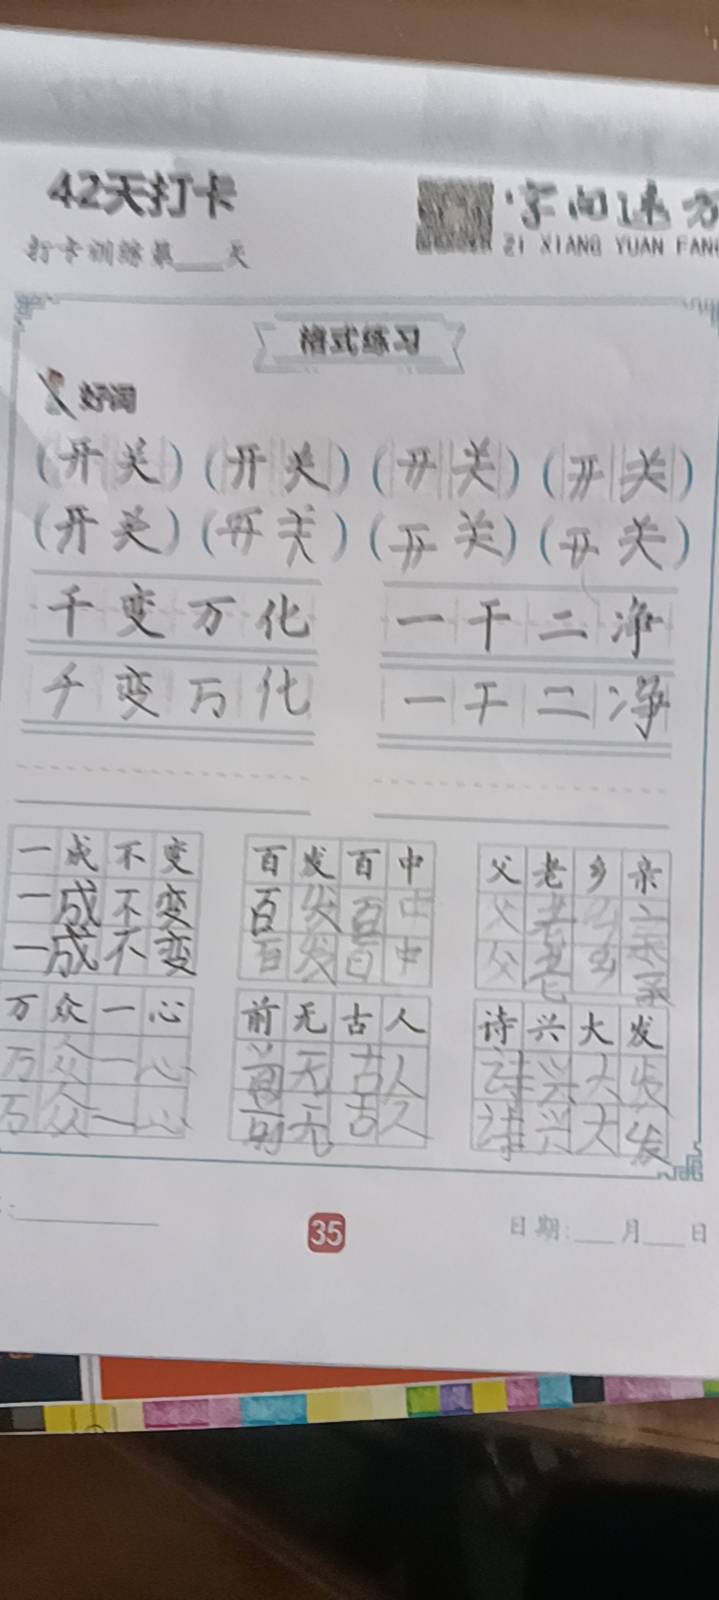 42天打卡
字向远方
ZI XIANG YUAN FANG
打卡训练第___天
格式练习
好词
(开关)(开关)(开关)(开关)
(开关)(开关)(开关)(开关)
千变万化 一干二净
千变万化 一干二净
一成不变 百发百中 父老乡亲
一成不变 百发百中 父老乡亲
一成不变 百发百中 父老乡亲
万众一心 前无古人 诗兴大发
万众一心 前无古人 诗兴大发
万众一心 前无古人 诗兴大发
35
日期:___月___日